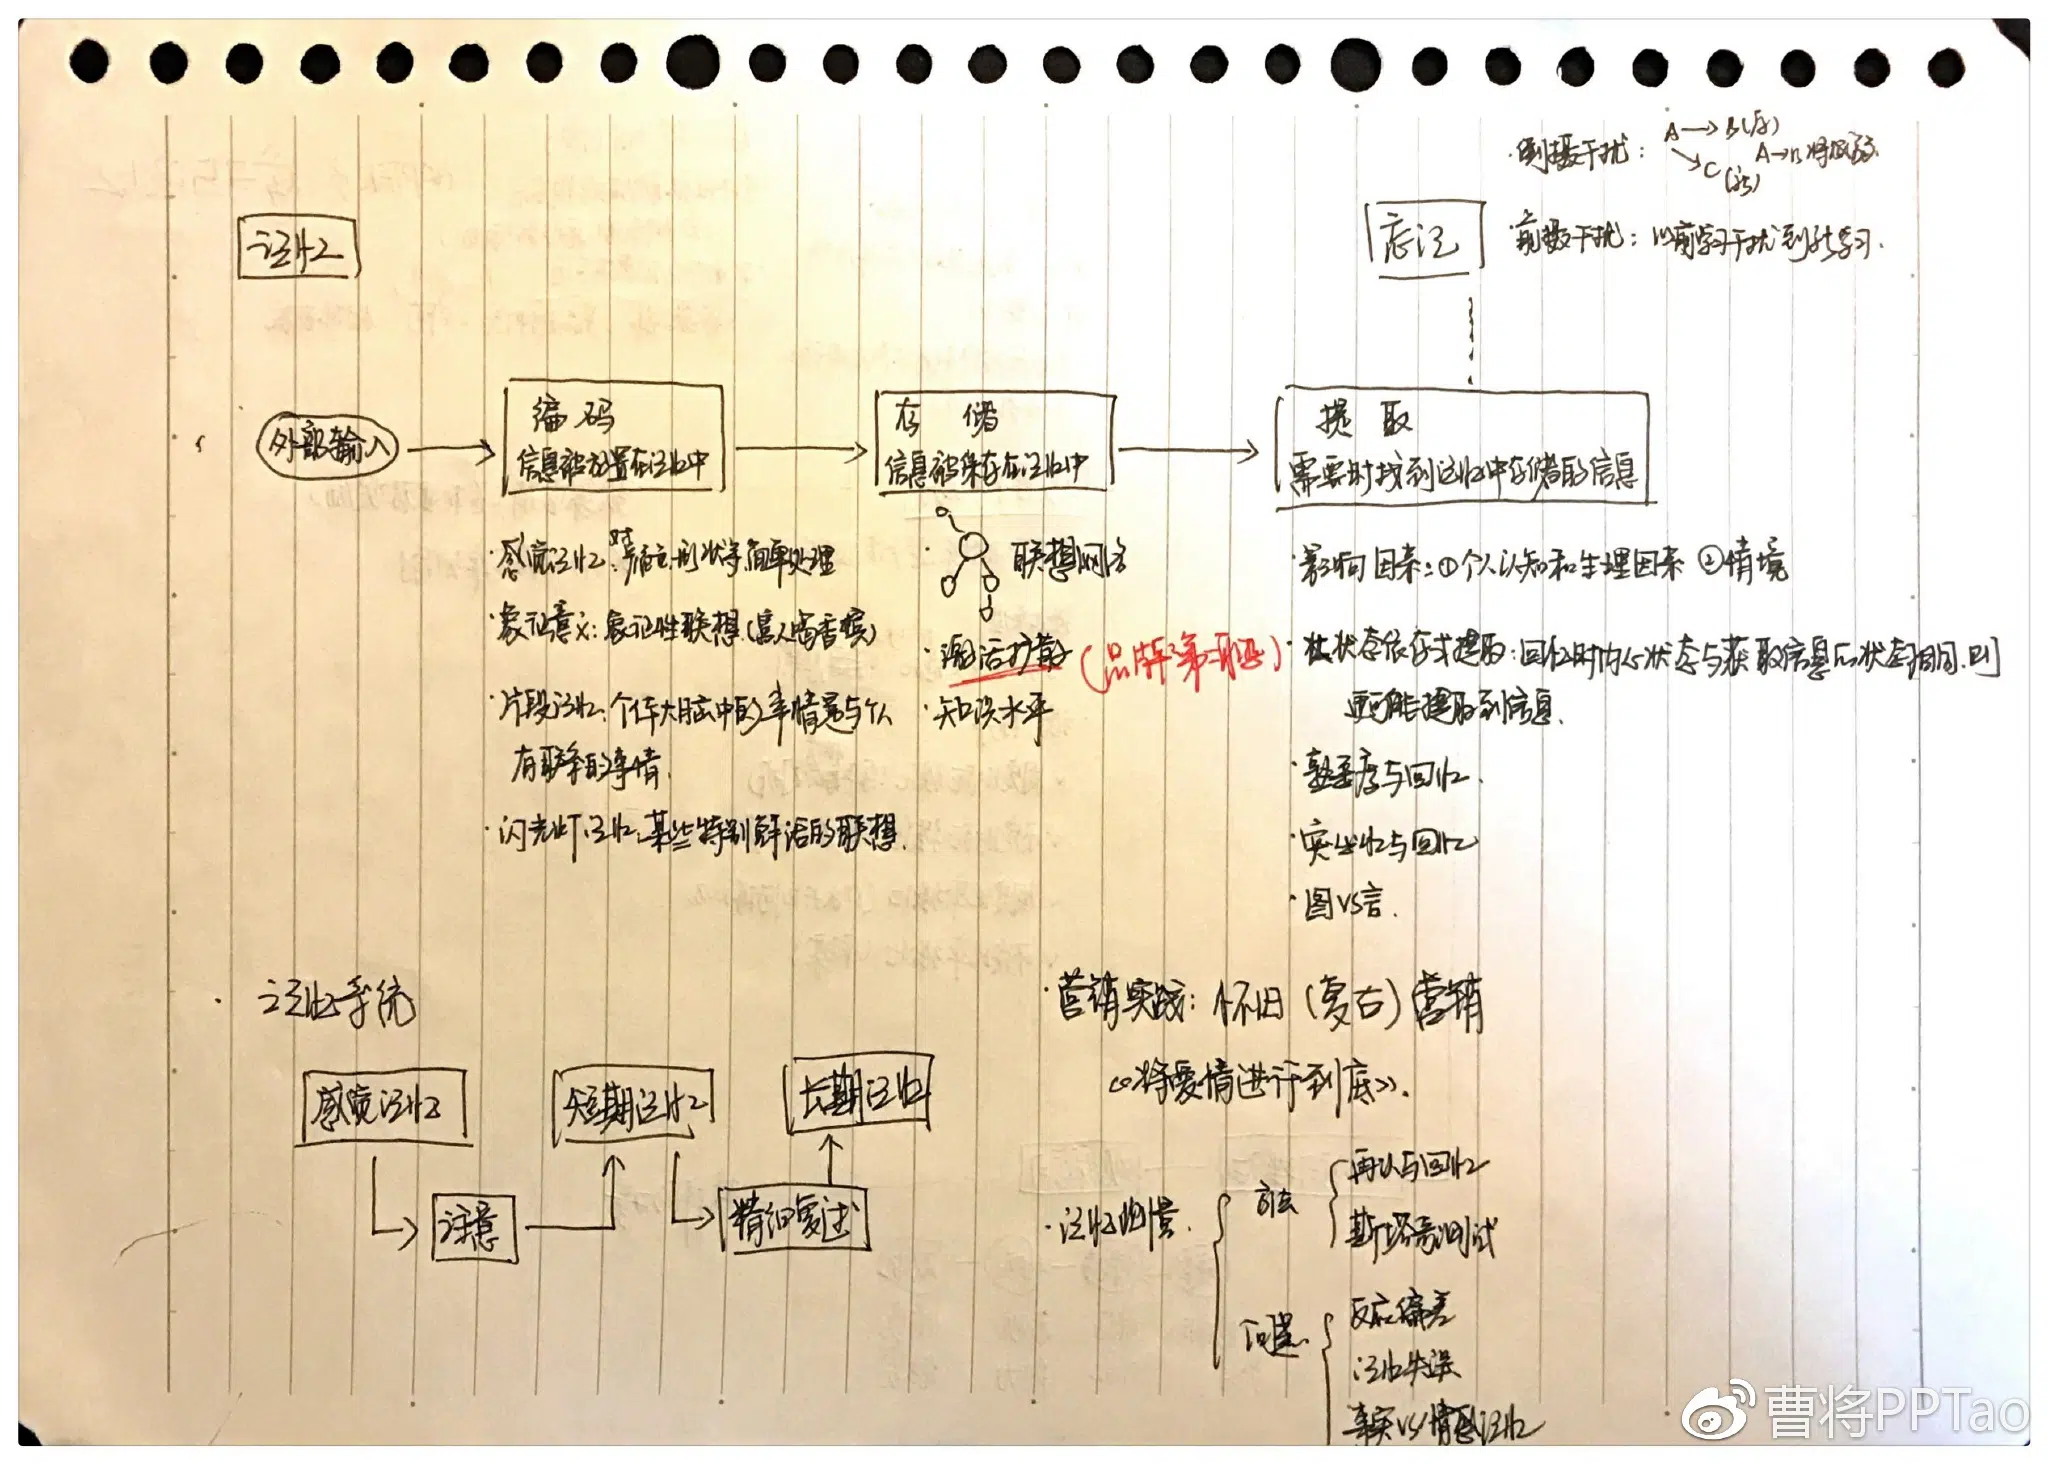 倒摄干扰: A→B(原)
A→B将很弱
C(新)
记忆
忘记
前摄干扰: 以前学习干扰到新学习.
外部输入
编码
信息被放置在记忆中
存储
信息被保存在记忆中
提取
需要时找到记忆中存储的信息
·感觉记忆: 对 形状等简单处理
·象征意义: 象征性联想(富人喝香槟)
·片段记忆: 个体大脑中的事情是与个人
有联系的事情.
·闪光灯记忆: 某些特别鲜活的联想.
·联想网络
·激活扩散(品牌第一联想)
·知识水平
·影响因素: ①个人认知和生理因素 ②情境
·状态依存式提取: 回忆时内心状态与获取信息时状态相同,则
更可能提取到信息.
·熟悉度与回忆.
·突出性与回忆
·图VS言.
·记忆系统
感觉记忆
短期记忆
长期记忆
注意
精细复述
·营销实践: 怀旧(复古)营销
《将爱情进行到底》.
·记忆测量.
方法
再认与回忆
斯塔奇测试
问题.
反应偏差
记忆失误
事实VS情感记忆
曹将PPTao